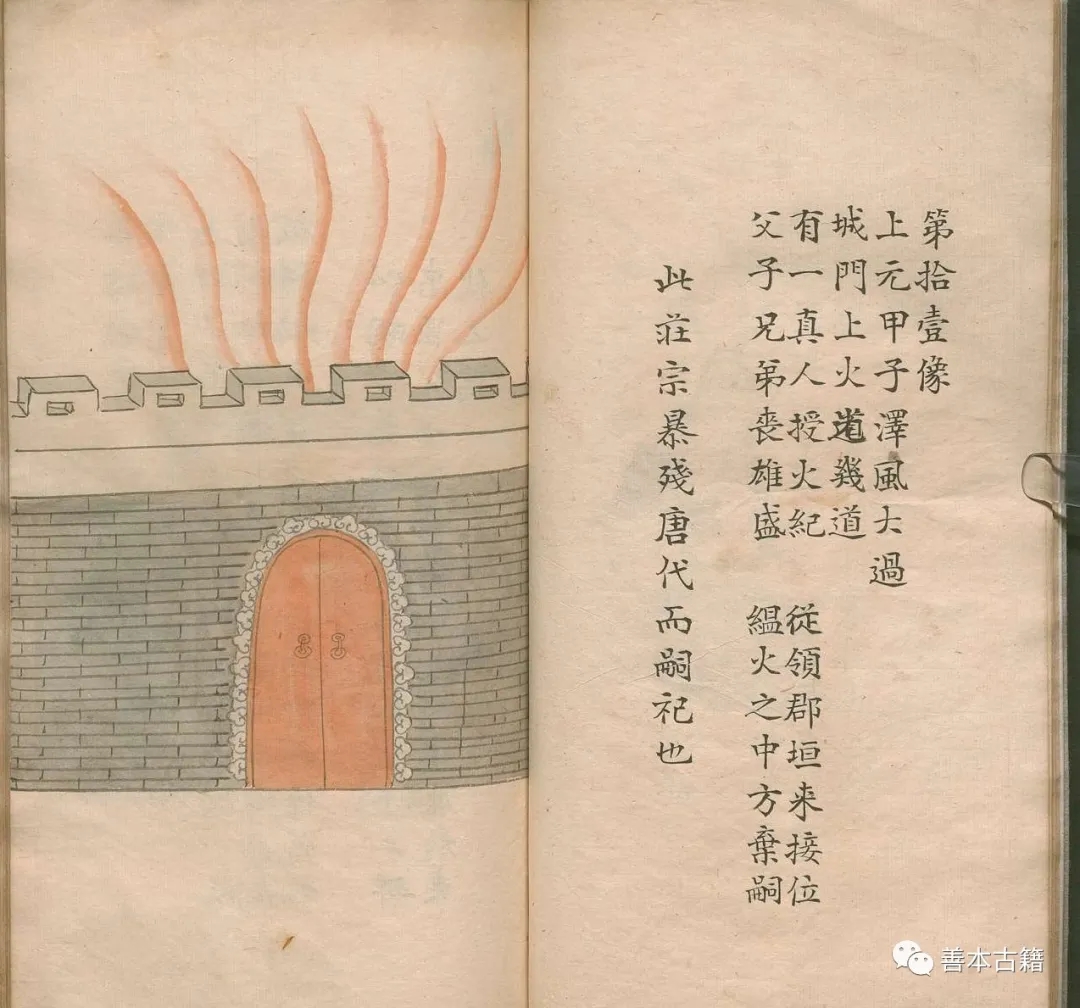 第拾壹像
上元甲子澤風大過
城門上火道幾道
有一真人授火紀 從領郡垣来接位
父子兄弟喪雄盛 緼火之中方棄嗣
此莊宗暴殘唐代而嗣祀也
善本古籍